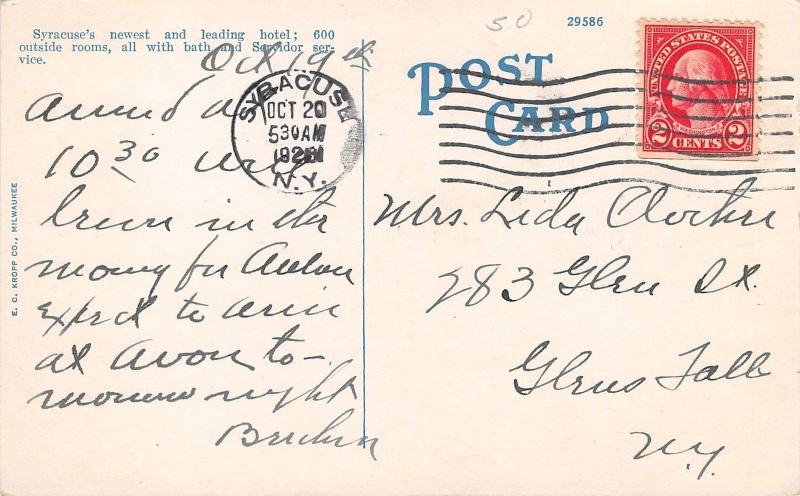 Syracuse's newest and leading hotel; 600
outside rooms, all with bath and Servidor ser-
vice.
Oct 19th
10 30 will
leave in the
morning for
Expect to arrive
at Avon to-
morrow night
E. C. KROPP CO., MILWAUKEE
SYRACUSE
OCT 20
530 AM
N.Y.
50
29586
POST
CARD
UNITED STATES POSTAGE
WASHINGTON
2 CENTS 2
Mrs. Leda
283 Glen St.
Glens Falls
N.Y.